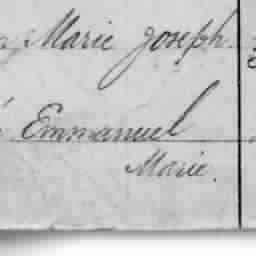 Marie Joseph
Emmanuel
Marie.